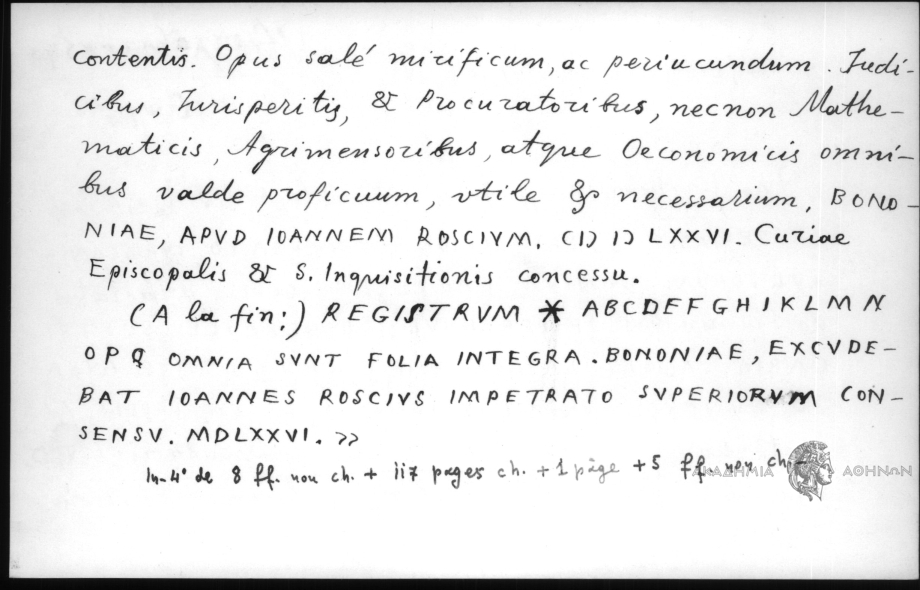 contentis. Opus salé mirificum, ac periucundum. Iudi-
cibus, Iurisperitis, & Procuratoribus, necnon Mathe-
maticis, Agrimensoribus, atque Oeconomicis omni-
bus valde proficuum, vtile & necessarium, BONO-
NIAE, APVD IOANNEM ROSCIVM. CIↃ IↃ LXXVI. Curiae
Episcopalis & S. Inquisitionis concessu.
(A la fin:) REGISTRVM * ABCDEFGHIKLMN
OPQ OMNIA SVNT FOLIA INTEGRA. BONONIAE, EXCVDE-
BAT IOANNES ROSCIVS IMPETRATO SVPERIORVM CON-
SENSV. MDLXXVI. >>
In-4° de 8 ff. non ch. + 117 pages ch. + 1 page + 5 ff. non ch.
ΑΚΑΔΗΜΙΑ ΑΘΗΝΩΝ